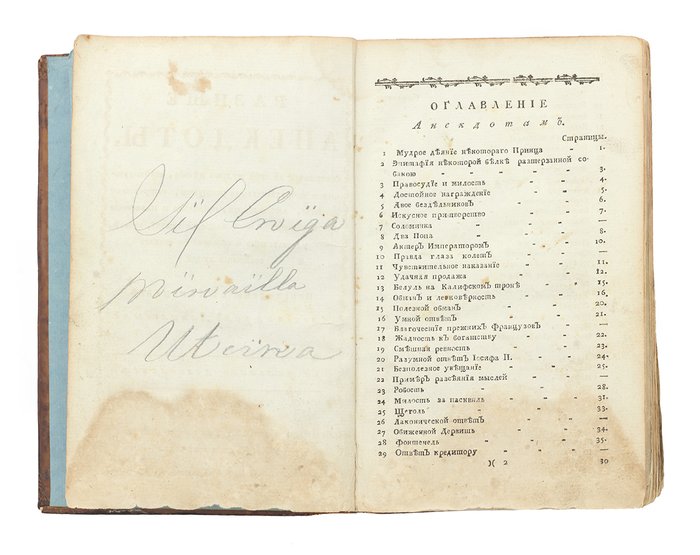 РАЗНЫЕ
АНЕКДОТЫ.
ОГЛАВЛЕНІЕ
Анекдотамъ.
Страницы.
1 Мудрое дѣяніе нѣкотораго Принца „ 1.
2 Эпитафія нѣкоторой бѣлкѣ разтерзанной со-
бакою „ „ „ 3.
3 Правосудіе и милость „ „ 4.
4 Достойное награжденіе „ „ 5.
5 Двое бездѣльниковъ „ „ 6.
6 Искусное притворство „ „ 7.
7 Соломинка „ „ „ 7.
8 Два Попа „ „ „ 8.
9 Актеръ Императоромъ „ „ 10.
10 Правда глаза колетъ „ „ —
11 Чувствительное наказаніе „ „ 11.
12 Удачная продажа „ „ 12.
13 Белуль на Калифскомъ тронѣ „ 15.
14 Обманъ и легковѣрность „ „ 16.
15 Полезной обманъ „ „ 20.
16 Умной отвѣтъ „ „ 21.
17 Благочестіе прежнихъ Французовъ „ —
18 Жадность къ богатству „ „ 22.
19 Смѣшная ревность „ „ 23.
20 Разумной отвѣтъ Іосифа II. „ 24.
21 Безполезное увѣщаніе „ „ 25.
22 Примѣръ разсѣянія мыслей „ —
23 Робость „ „ „ 28.
24 Милость за пасквиль „ „ 31.
25 Щеголь „ „ „ 33.
26 Лаконической отвѣтъ „ „ —
27 Обиженной Дервишъ „ „ 34.
28 Фонтенель „ „ „ 35.
29 Отвѣтъ кредитору „ „ —
)( 2 30